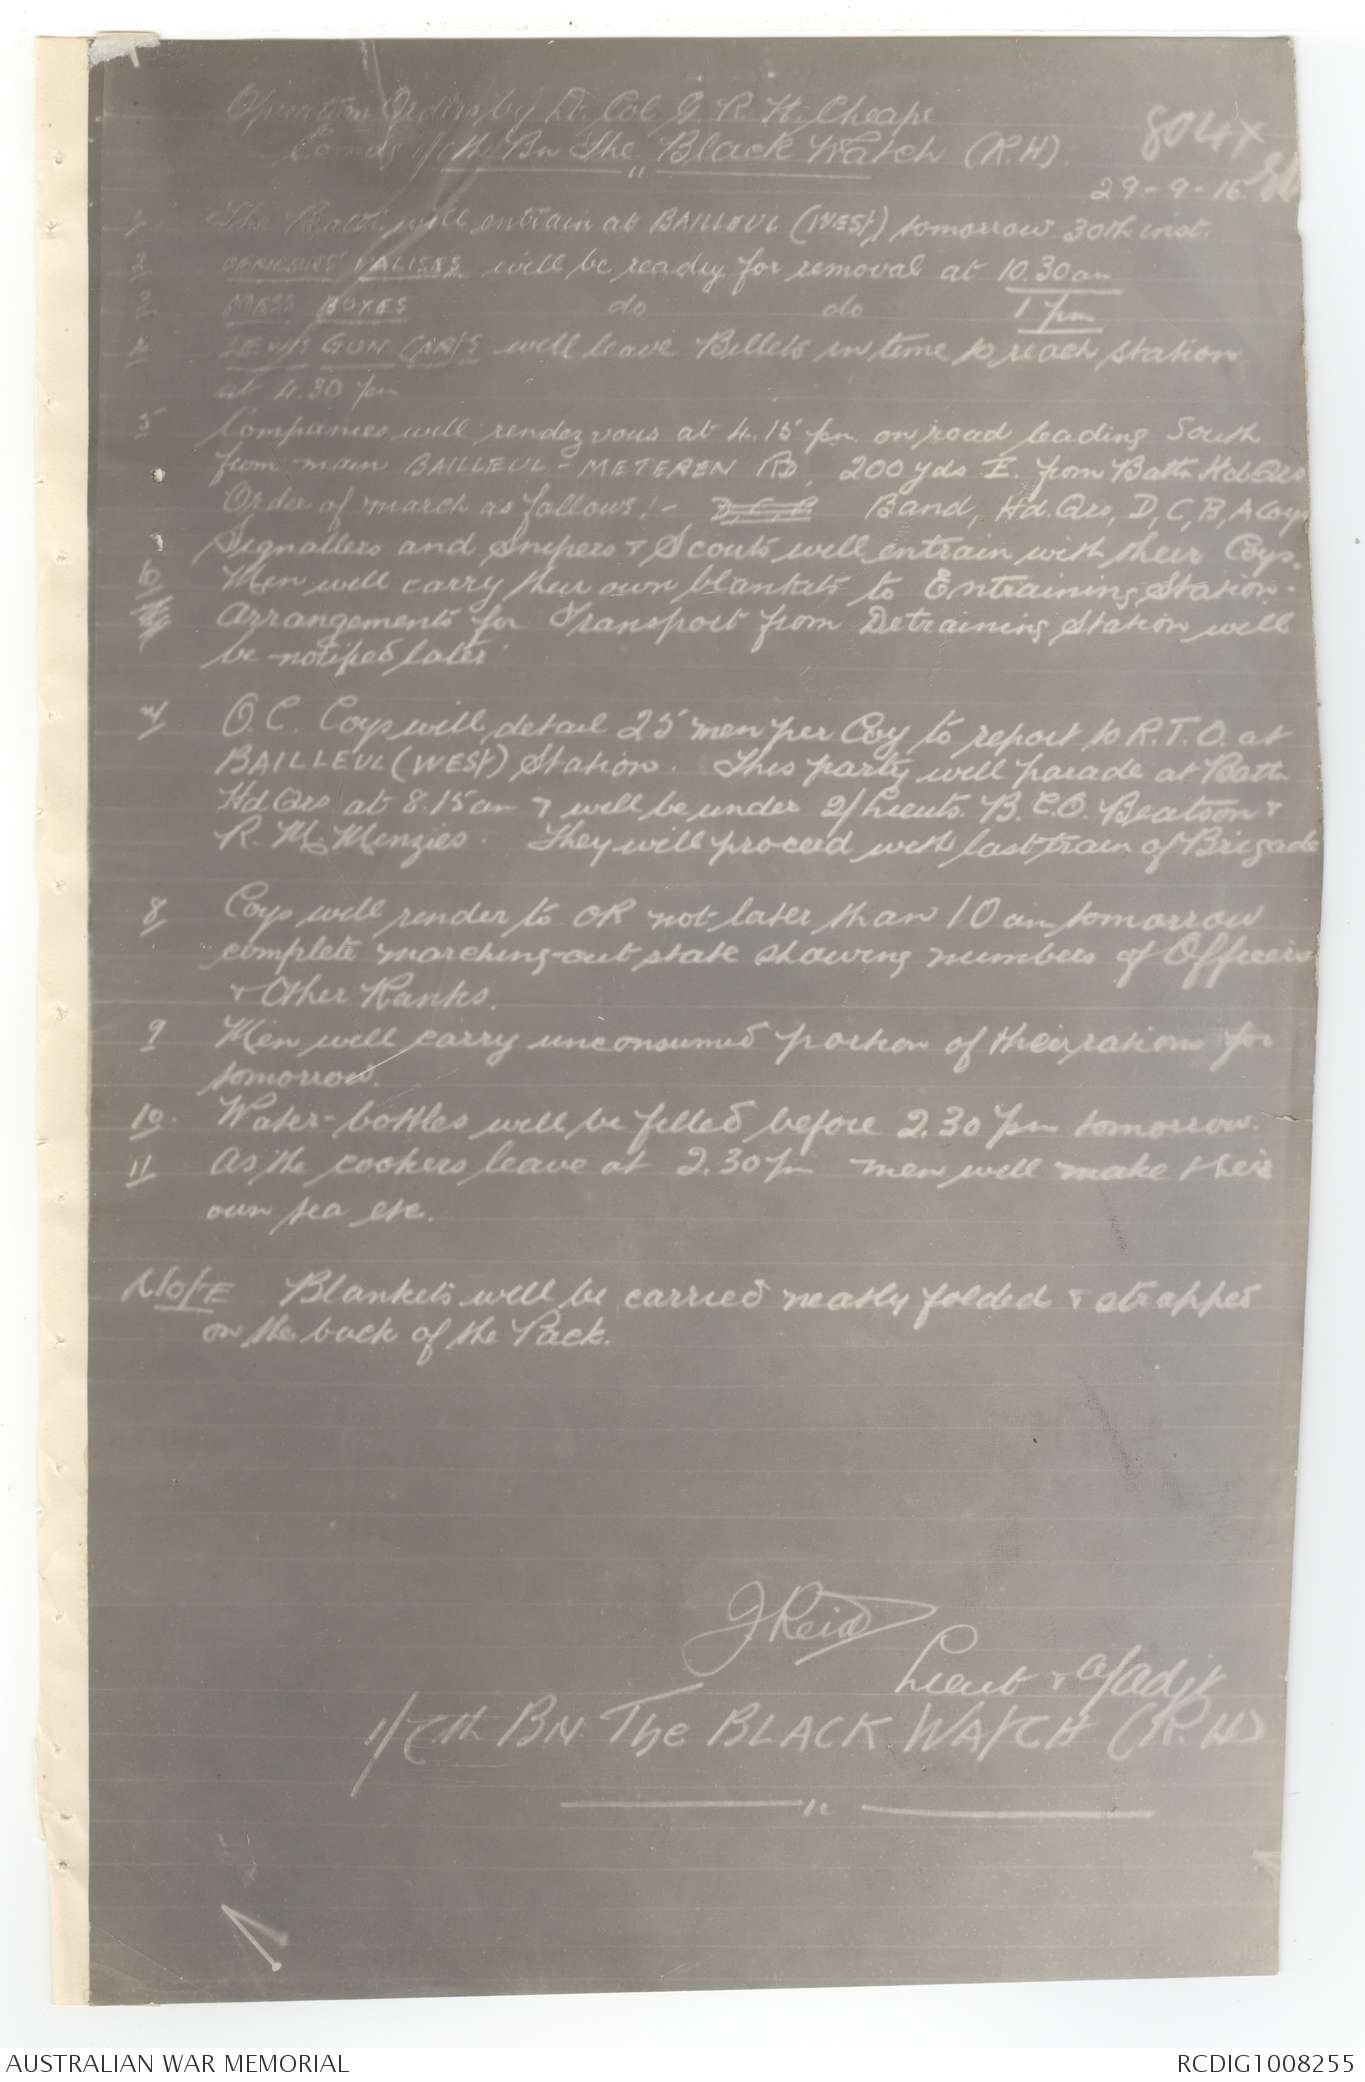 Operation Orders by Lt. Col. G. R. H. Cheape
Comdg 1/7th Bn The Black Watch (R.H)
804x
29-9-16
1/ The Battn will entrain at BAILLEUL (WEST) tomorrow 30th inst.
2/ OFFICERS' VALISES will be ready for removal at 10.30am
3/ MESS BOXES do do 1 pm
4/ LEWIS GUN CARTS will leave Billets in time to reach station
at 4.30 pm
5/ Companies will rendezvous at 4.15 pm on road leading South
from main BAILLEUL - METEREN RD, 200 yds E. from Battn Hd Qrs
Order of march as follows:- D, C, B Band, Hd. Qrs, D, C, B, A Coys
Signallers and Snipers & Scouts will entrain with their Coys.
6/ Men will carry their own blankets to Entraining Station.
Arrangements for Transport from Detraining Station will
be notified later.
7/ O.C. Coys will detail 25 men per Coy to report to R.T.O. at
BAILLEUL (WEST) Station. This party will parade at Battn
Hd Qrs at 8.15am & will be under 2/Lieuts. B. C. O. Beatson &
R. Mc Menzies. They will proceed with last train of Brigade
8/ Coys will render to OR not later than 10 am tomorrow
complete marching-out state showing numbers of Officers
& Other Ranks.
9 Men will carry unconsumed portion of their rations for
tomorrow.
10. Water-bottles will be filled before 2.30 pm tomorrow.
11 As the cookers leave at 2.30 pm men will make their
own tea etc.
NOTE Blankets will be carried neatly folded & strapped
on the back of the Pack.
J Reid
Lieut & a/Adjt
1/7th BN. The BLACK WATCH (R.H)
AUSTRALIAN WAR MEMORIAL
RCDIG1008255